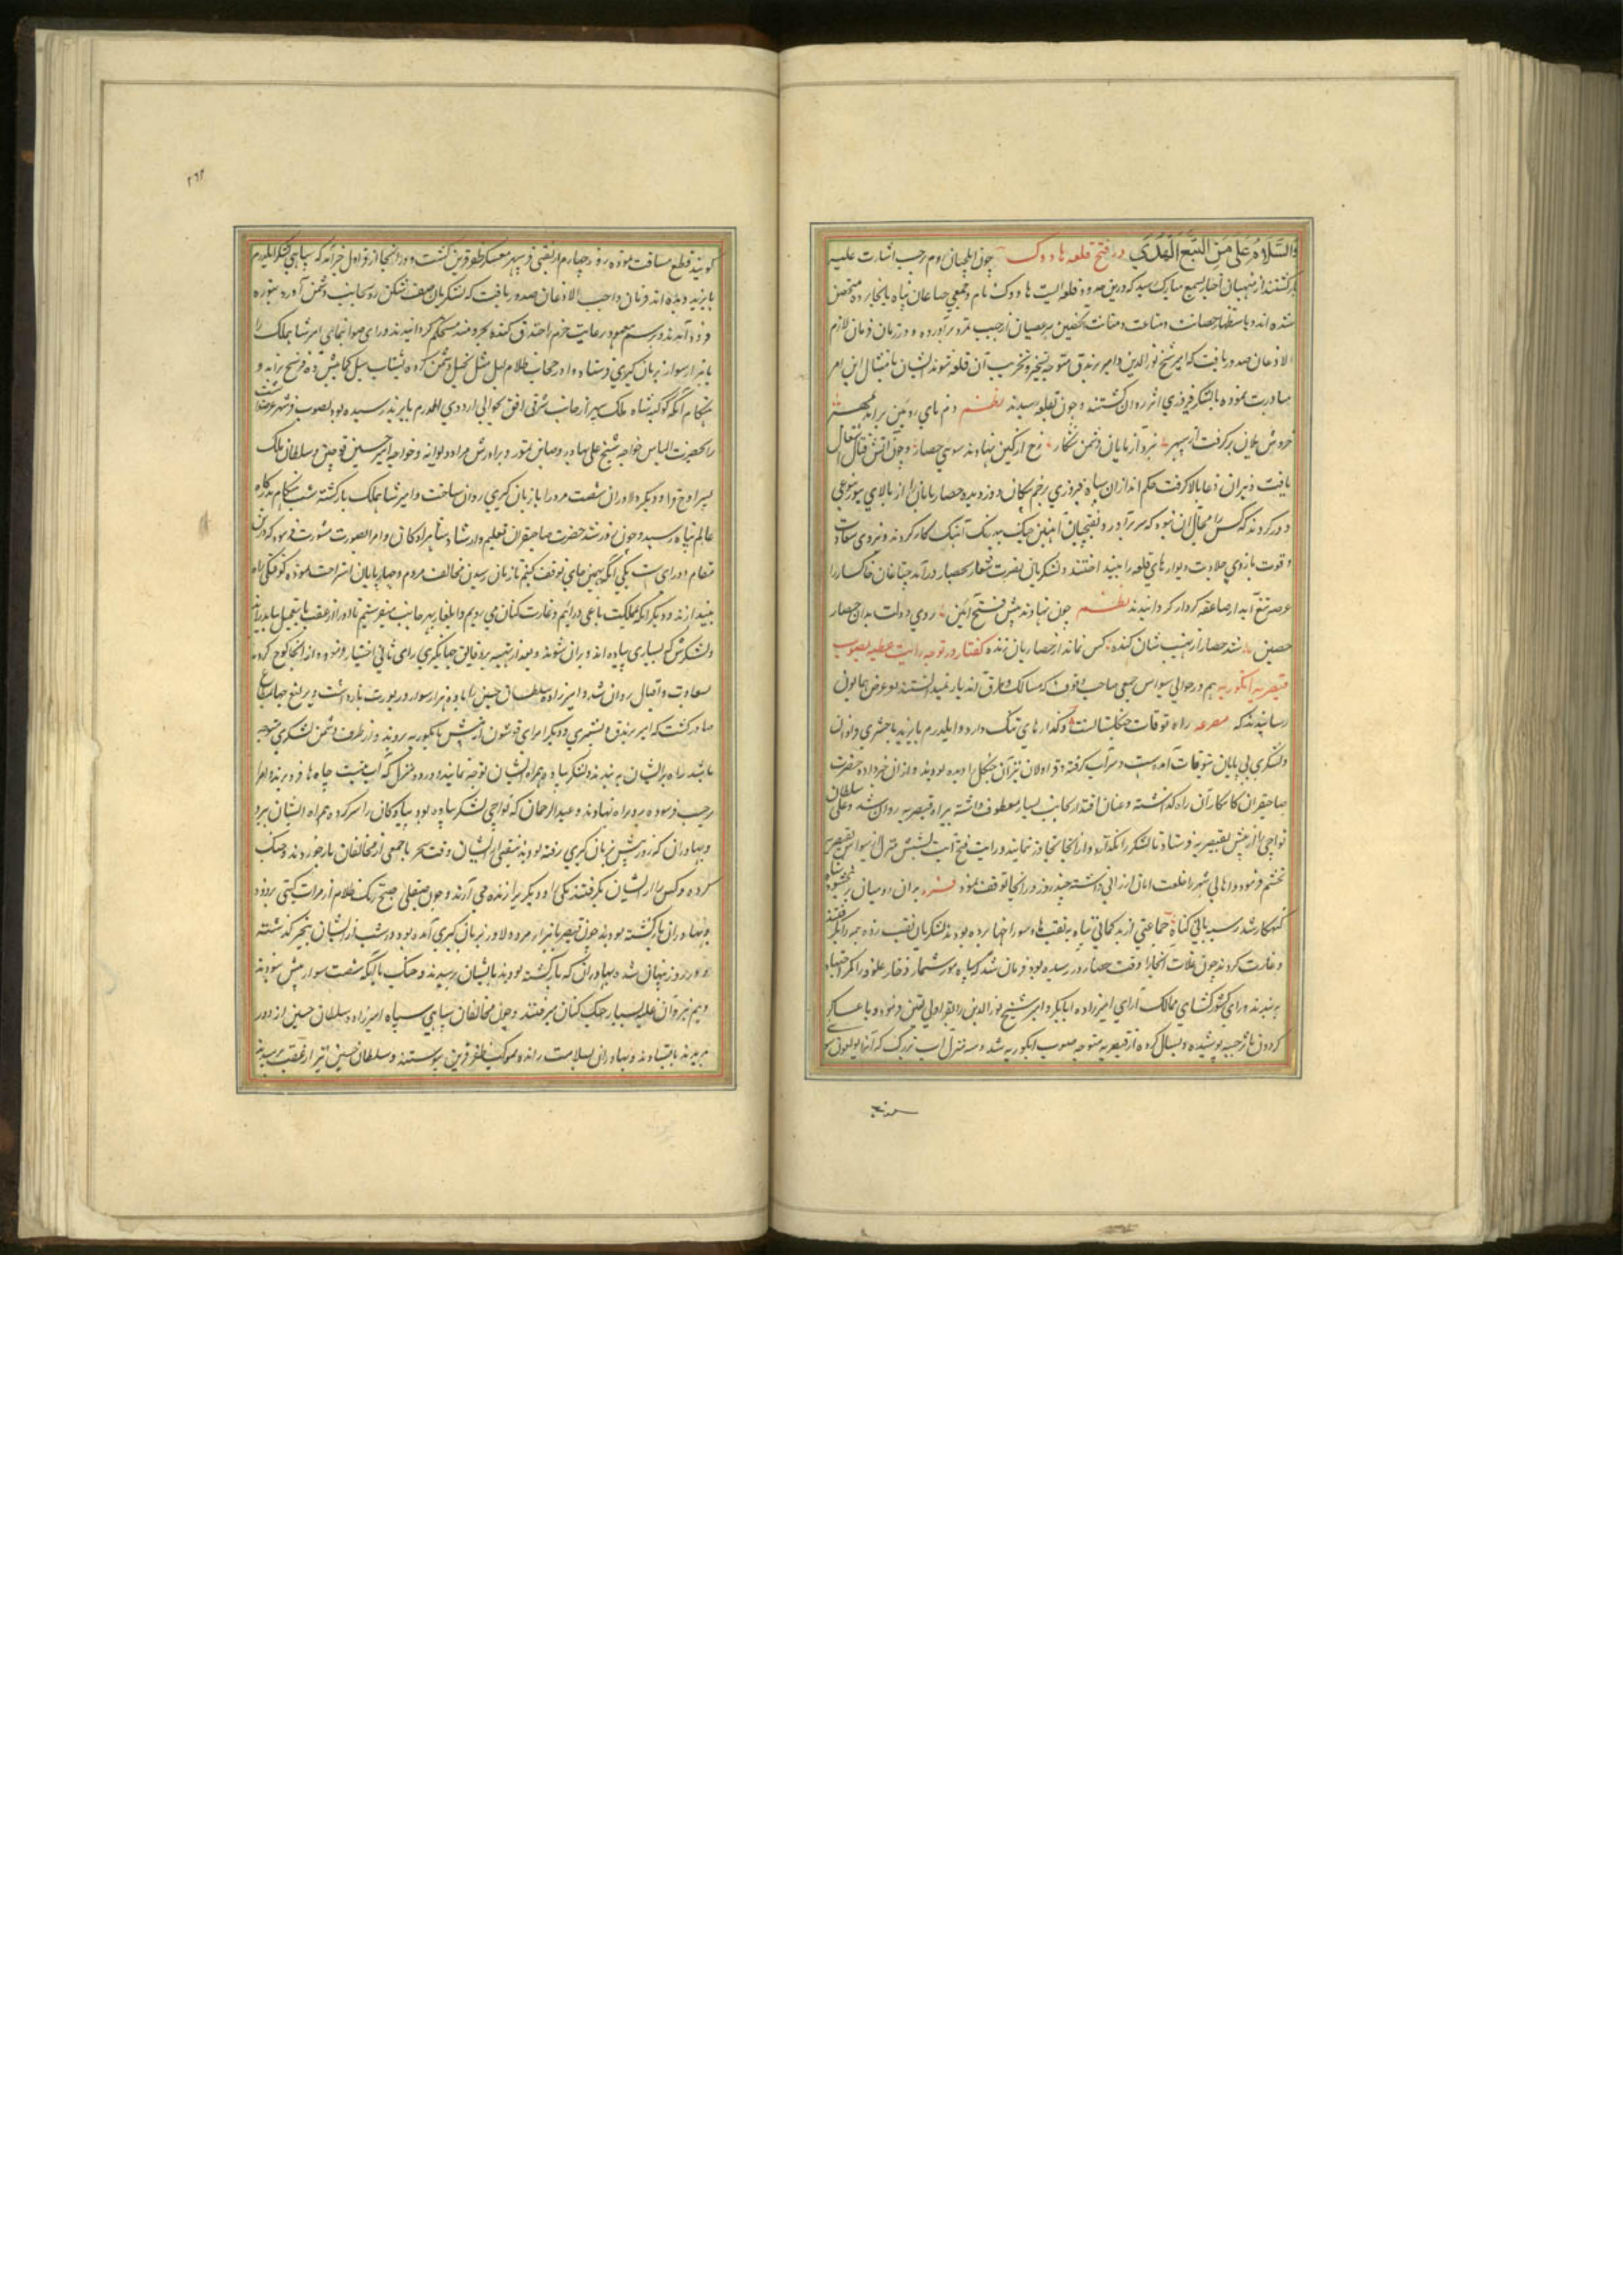 وَالسَّلَامُ عَلَى مَنِ اتَّبَعَ الْهُدَى در فتح قلعه هاروک چون ایلچیان روم برحسب اشارت علیه
بازگشتند از منهیان اخبار بسمع مبارک رسید که درین حدود قلعه ایست هاروک نام و جمعی پناه بانجا برده متحصن
شده اند و باستظهار حصانت و مناعت و متانت تحصین برعصیان از جیب تمرد برآورده و در زمان فرمان لازم
الاذعان صدور یافت که امیر شیخ نورالدین و امیر برندق متوجه تسخیر و تخریب آن قلعه شوند ایشان بامتثال این امر
مبادرت نموده با لشکر فیروزی اثر روان گشتند و چون بقلعه رسیدند نظم دم نای رویین برآمد بمهر
خروش یلان برگرفت از سپهر نبرد آزمایان دشمن شکار رخ از کین نهادند سوی حصار و چون آتش قتال اشتعال
یافت و نیران دعا بالا گرفت حکم اندازان سپاه فیروزی بزخم پیکان دوزد دیده حصاریان را از بالای
دور کردند که کس را مجال آن نبود که سر برآرد و نقبچیان آهنین چنگ بیدرنگ آهنگ کار کردند و نیروی سعادت
و قوت بازوی جلادت دیوارهای قلعه را بینداختند و لشکریان نصرت شعار بحصار درآمد خاکسار را
عرضه تیغ آبدار صاعقه کردار گردانیدند نظم چون نهادند پیش فتح آیین روی دولت بدان حصار
حصین شد حصار از نهیب شان کنده کس نماند از حصاریان زنده گفتار در توجه رایت عظیمه بصوب
قیصریه انگوریه هم در حوالی سیواس جمعی صاحب وقوف که مسالک و طرق آن دیار نیک میدانستند بعرض همایون
رسانیدند که مصرعه راه توقات جنگلستانست و گذارهای تنگ دارد و ایلدرم بایزید با حشری فراوان
و لشکری بی پایان بتوقات آمده است و سر آب گرفته و قراولان نیز آن جنگل را دیده بودند و از آن خبر داده حضرت
صاحبقران کامکار آن راه گذاشته و عنان اقتدار بجانب یسار معطوف داشته براه قیصریه روان شد و علی سلطان
تواچی را از پیش بقیصریه فرستاد تا لشکر را نگذارد و از آنجا تجاوز نمایند و رایت فتح آیت بشش منزل از سیواس بقیصریه
تخشم فرمود و اهالی شهر را خلعت امان ارزانی داشته چند روز در آنجا توقف نمود
گنهکار شد رسید بانی گناه جماعتی از بدگمانی پناه به نقبها و سوراخها برده بودند لشکریان نقب زده همه را بگرفتند
و غارت کردند چون غلات آنجا را وقت حصار در رسیده بود فرمان شد که سپاه بی شمار ذخایر علوفه را
ببندند و رای کشورگشای ممالک آرای امیرزاده ابابکر و امیر شیخ نورالدین را بقراولی تعین فرمود و با عساکر
گردون مآثر جیبه پوشیده و یسال کرده از قیصریه متوجه صوب انگوریه شد و سه منزل آب بزرگ که آنرا
۲۶۲
گویند قطع مسافت نموده روز چهارم مرتضی قیر شهر معسکر ظفر قرین گشت و در آنجا از قراول خبر آمد که سیاهی لشکر ایلدرم
بایزید دیده اند فرمان واجب الاذعان صدور یافت که لشکریان صف شکن رو بجانب دشمن آورد بتوره
فرود آمدند و برسم معهود رعایت حزم را خندق کنده بچپر و منده مستحکم گردانیدند و رای صوابنمای امیر شاهملک را
با هزار سوار از زبان گیری فرستاده او در حجاب ظلام لیل مثل بخیل دشمن کرده بشتاب سیل کمابیش ده فرسخ براند و
هنگام آنکه کوکبه شاه ملک سپهر از جانب شرقی افق بحوالی اردوی ایلدرم بایزید رسیده بود بصوب
را بحضرت الیاس خواجه شیخ علی بهادر و صاین تمور و برادرش مراد و دیوانه و خواجه امیر حسین قوچین و سلطان ملک
پسر اوج قرا و دیگر دلاوران شصت مرد را بازبان گیری روان ساخت و امیر شاهملک بازگشته شب هنگام بدرگاه
عالم پناه رسید و چون روز شد حضرت صاحبقران تعلیم و ارشاد شاهزادگان و امرا بصورت مشورت فرمود که درین
مقام دو رای است یکی آنکه بهمین جای توقف کنیم تا زمان رسیدن مخالف مردم و چهارپایان استراحت نموده کوفتگی راه
بیندازند و دیگر آنکه بمملکت یاغی درآئیم و غارت کنان می رویم و ایلغار بهر جانب میفرستیم تا او را از عقب ما بتعجیل بباید راند
و لشکرش که بسیاری پیاده اند ویران شوند و بعد از تنبیه بر دقایق جهانگیری رای ثانی اختیار فرموده از آنجا کوچ کرده
بسعادت و اقبال روان شد و امیرزاده سلطان حسین را با دو هزار سوار در یورت بازداشت و یرلیغ جهانمطاع
صادر گشت که امیر برندق و بسطری و دیگر امرای قوشون از پیش بانگوریه بروند و از طرف دشمن لشکری متوجه
باشد راه بر ایشان به بندند و لشکر پیاده همراه ایشان توجه نمایند و در هر منزل که آب نیست چاه ها فرو برند امرا
برحسب فرموده رو در راه نهادند و عبدالرحمان که تواچی لشکر پیاده بود پیادگان را سرکرده همراه ایشان ببرد
و بهادران که روز پیش بزبان گیری رفته بودند بعضی از ایشان وقت سحر با جمعی از مخالفان بازخوردند و جنگ
کرده دو کس را از ایشان بگرفتند یکی را و دیگر را زنده می آرند و چون صیقلی صبح زنگ ظلام از مرآت گیتی بزدود
بهادران بازگشته بودند چون قیصر با هزار مرد دلاور بزبان گیری آمده بود و در شب از ایشان بیخبر گذشته
و در روز پنهان شده بهادران که بازگشته بودند بایشان رسیدند و جنگ با آنکه شصت سوار بیش نبودند
و هم نبرد آن غلبه بسیار جنگ کنان میرفتند و چون مخالفان سیاهی سپاه امیرزاده سلطان حسین از دور
بدیدند باستادند و بهادران بسلامت رانده بموکب ظفر قرین پیوستند و سلطان حسین نیز از عقب برسید